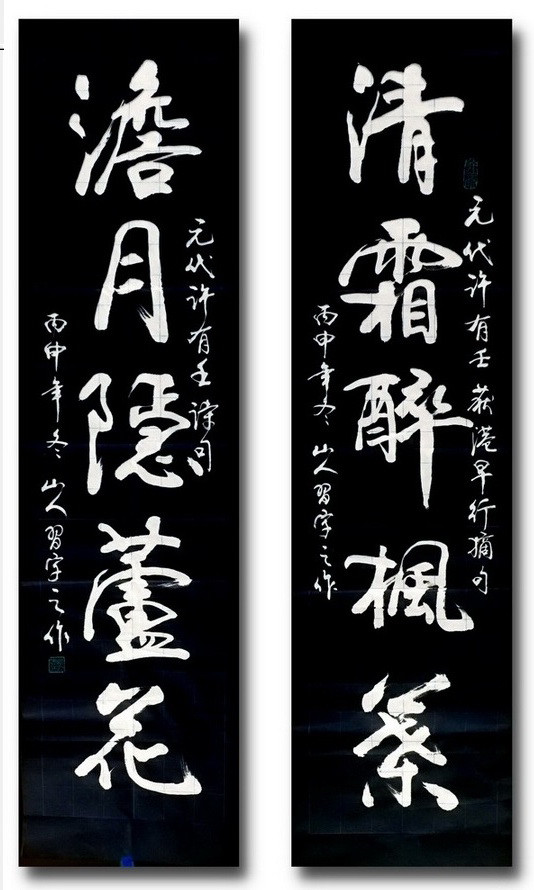 清霜醉楓葉
元代许有壬荻港早行摘句
丙申年冬山人習字之作
澹月隱蘆花
元代许有壬詩句
丙申年冬山人習字之作